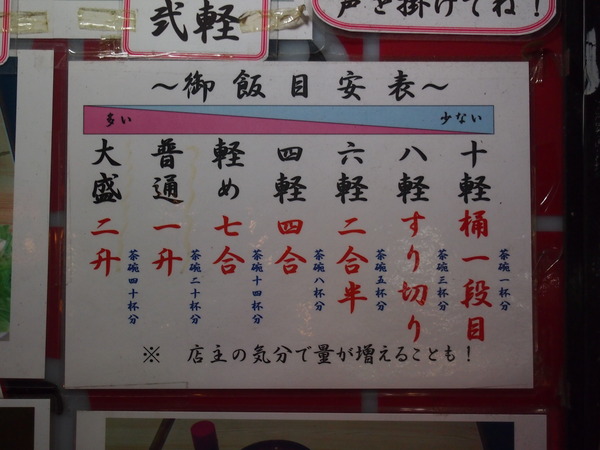 弐軽
声を掛けてね！
～御飯目安表～
多い
少ない
十軽 桶一段目
茶碗一杯分
八軽 すり切り
茶碗三杯分
六軽 二合半
茶碗五杯分
四軽 四合
茶碗八杯分
軽め 七合
茶碗十四杯分
普通 一升
茶碗二十杯分
大盛 二升
茶碗四十杯分
※ 店主の気分で量が増えることも！